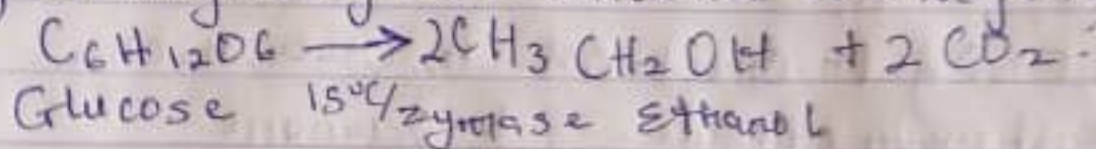 C6H12O6 → 2CH3 CH2 OH + 2 CO2
Glucose 15°C/zymase Ethanol